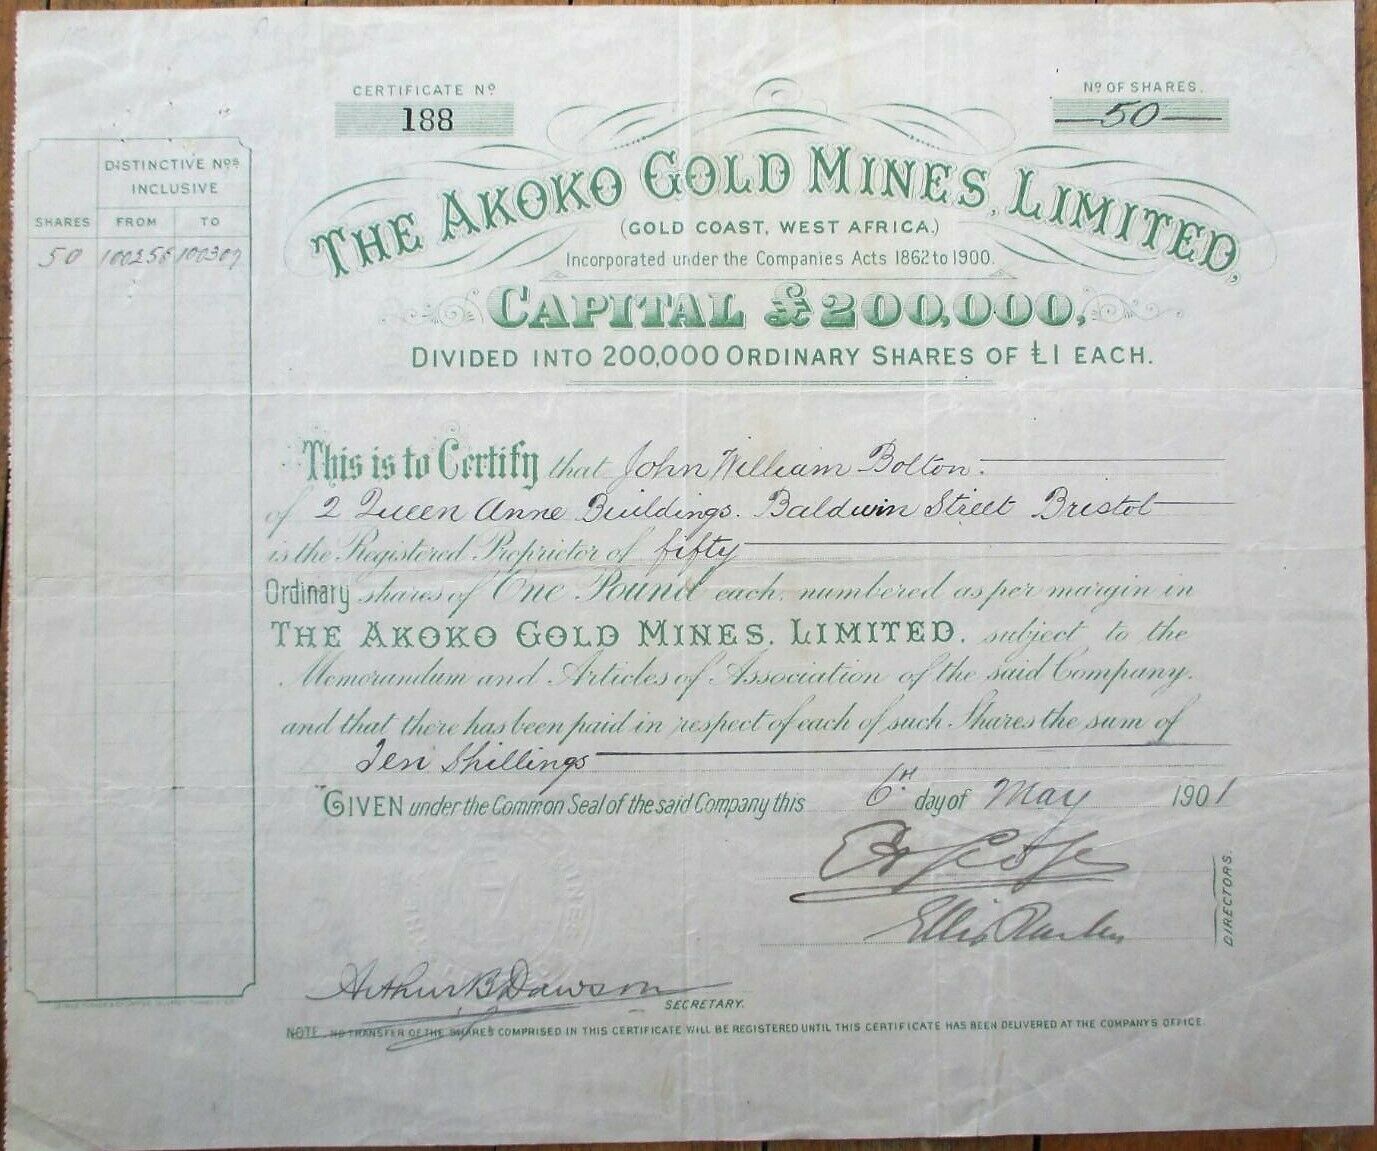 CERTIFICATE Nº
188
Nº OF SHARES.
50
THE AKOKO GOLD MINES, LIMITED,
(GOLD COAST, WEST AFRICA.)
Incorporated under the Companies Acts 1862 to 1900.
CAPITAL £200,000,
DIVIDED INTO 200,000 ORDINARY SHARES OF £1 EACH.
DISTINCTIVE Nºs
INCLUSIVE
SHARES FROM TO
50
This is to Certify that John William Bolton.
of 2 Queen Anne Buildings. Baldwin Street Bristol
is the Registered Proprietor of fifty
Ordinary shares of One Pound each, numbered as per margin in
THE AKOKO GOLD MINES, LIMITED, subject to the
Memorandum and Articles of Association of the said Company,
and that there has been paid in respect of each of such Shares the sum of
Ten Shillings
GIVEN under the Common Seal of the said Company this 6th day of May 1901
Ellis
DIRECTORS.
Arthur B Dawson
SECRETARY.
NOTE. NO TRANSFER OF THE SHARES COMPRISED IN THIS CERTIFICATE WILL BE REGISTERED UNTIL THIS CERTIFICATE HAS BEEN DELIVERED AT THE COMPANY'S OFFICE.